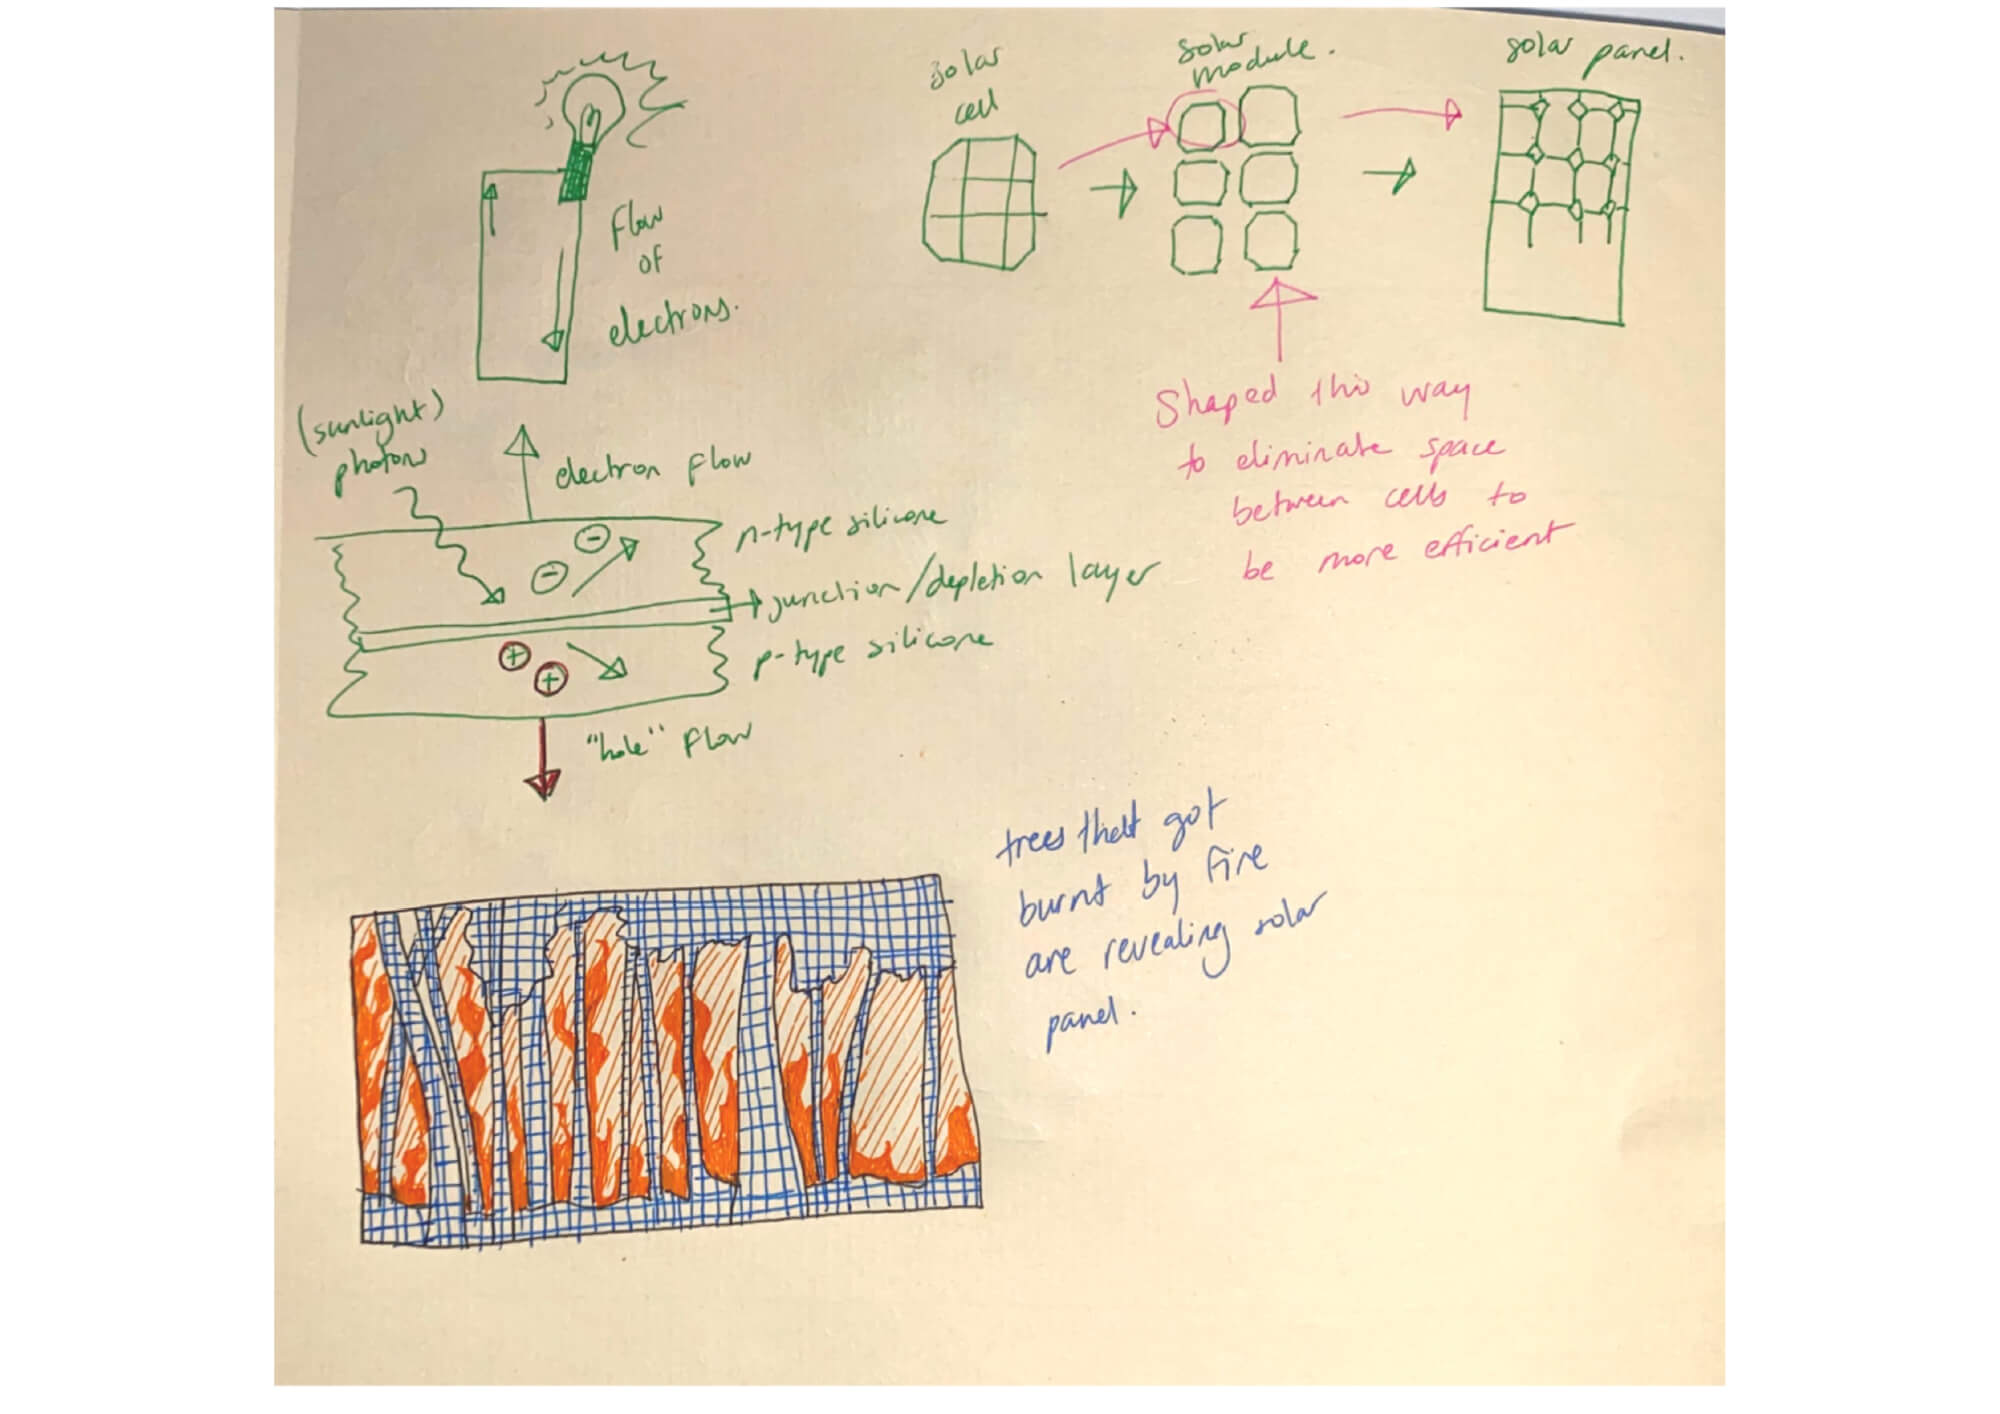 flow
of
electrons.
(sunlight)
photon
electron flow
n-type silicone
junction/depletion layer
p-type silicone
"hole" flow
solar
cell
solar
module.
solar panel.
Shaped this way
to eliminate space
between cells to
be more efficient
trees that got
burnt by fire
are revealing solar
panel.